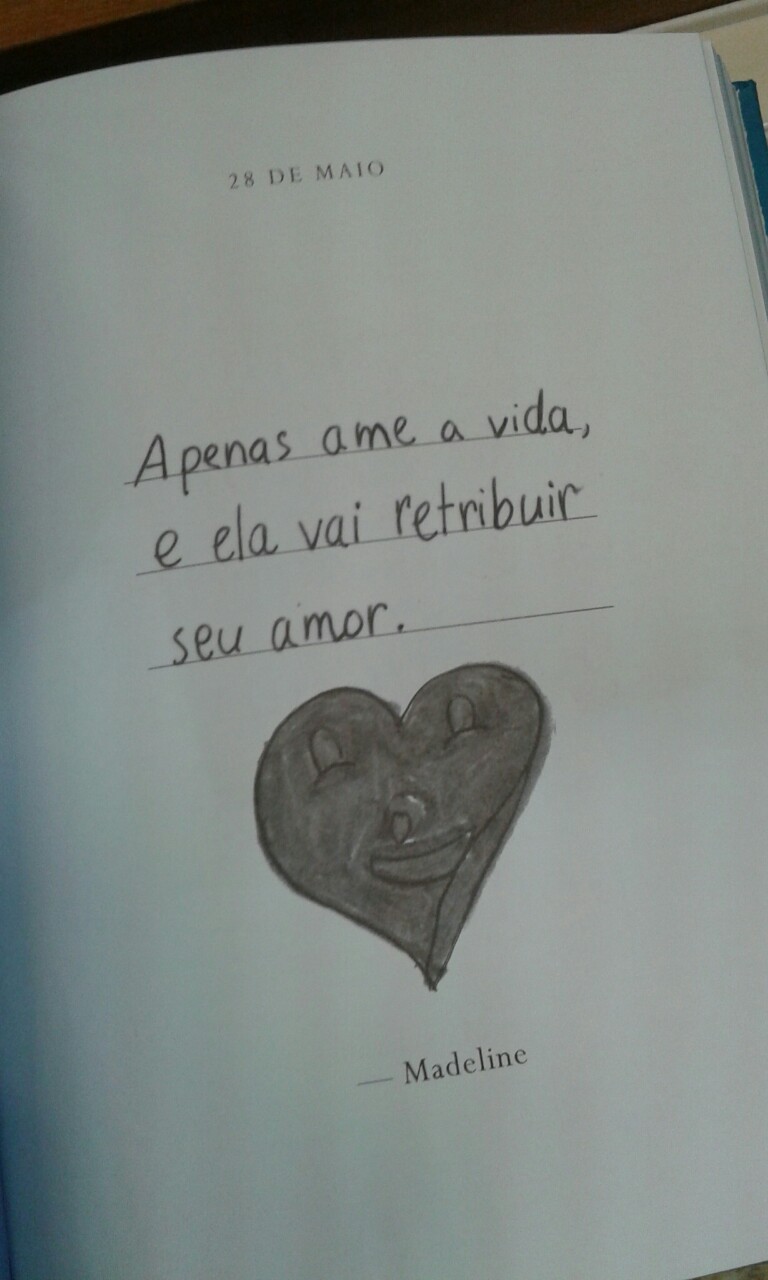 28 DE MAIO
Apenas ame a vida,
e ela vai retribuir
seu amor.
— Madeline